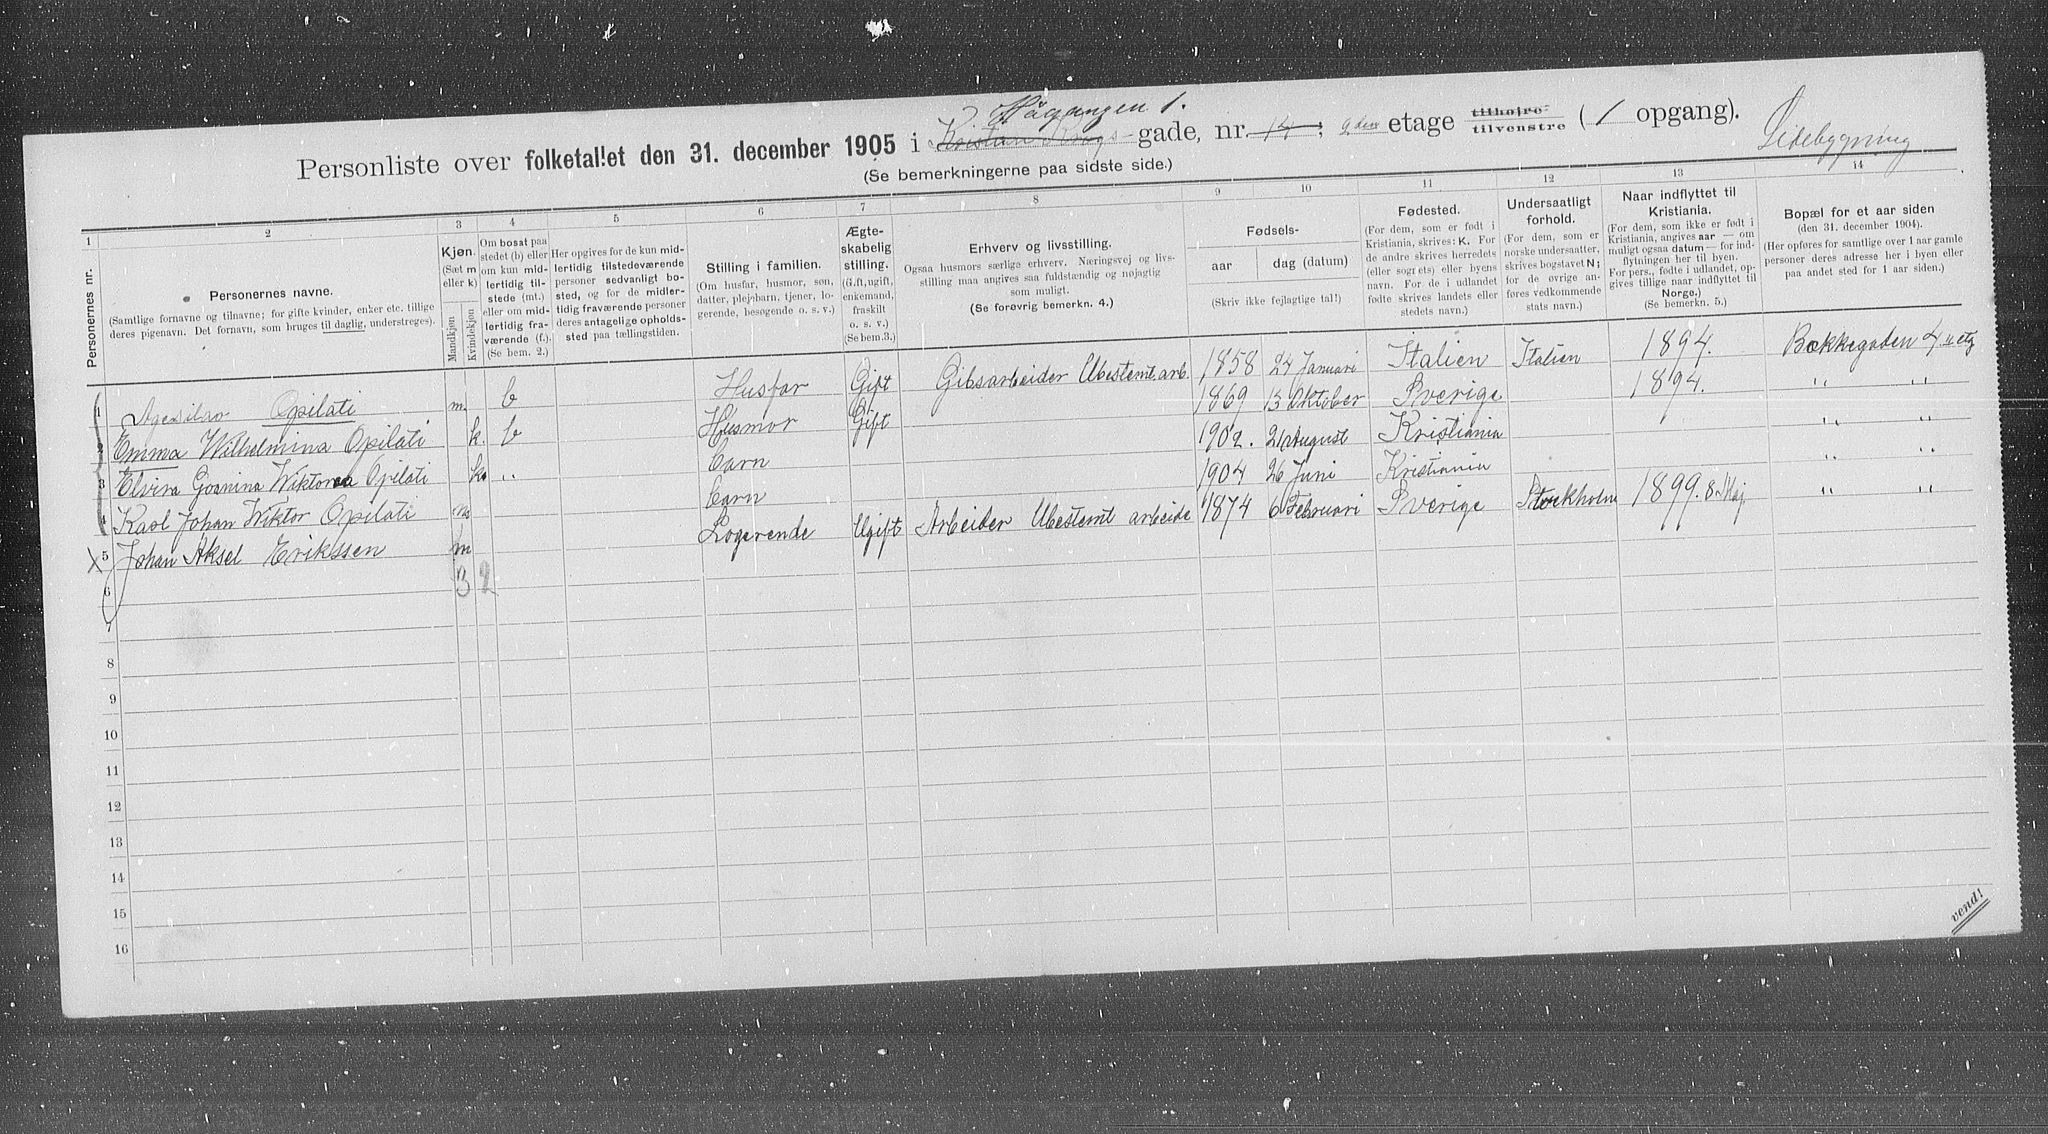 Personliste over folketallet den 31. december 1905 i Kristian Krogs- gade, nr. 14; 2den etage tilhøjre tilvenstre (1 opgang). Sidebygning
(Se bemerkningerne paa sidste side.)
1 2 3 4 5 6 7 8 9 10 11 12 13 14
Personernes nr.
Personernes navne.
(Samtlige fornavne og tilnavne; for gifte kvinder, enker etc. tillige
deres pigenavn. Det fornavn, som bruges til daglig, understreges).
Kjøn.
(Sæt m
eller k)
Mandkjøn
Kvindekjøn
Om bosat paa
stedet (b) eller
om kun mid-
lertidig til-
stede (mt.)
eller om mid-
lertidig fra-
værende (f.).
(Se bem. 2.)
Her opgives for de kun mid-
lertidig tilstedeværende
personer sedvanligt bo-
sted, og for de midler-
tidig fraværende personer
deres antagelige opholds-
sted paa tællingstiden.
Stilling i familien.
(Om husfar, husmor, søn,
datter, plejebarn, tjener, lo-
gerende, besøgende o. s. v.)
Ægte-
skabelig
stilling.
(Gift, ugift,
enkemand,
fraskilt
o. s. v.)
(Se bem.3.)
Erhverv og livsstilling.
Ogsaa husmors særlige erhverv. Næringsvej og livs-
stilling maa angives saa fuldstændig og nøjagtig
som muligt.
(Se forøvrig bemerkn. 4.)
Fødsels-
aar
dag (datum)
(Skriv ikke fejlagtige tal!)
Fødested.
(For dem, som er født i
Kristiania, skrives: K. For
de andre skrives herredets
(eller sogrets) eller byens
navn. For de i udlandet
fødte skrives landets eller
stedets navn.)
Undersaatligt
forhold.
(For dem, som er
norske undersaatter,
skrives bogstavet N;
for de øvrige an-
føres vedkommende
stats navn.)
Naar indflyttet til
Kristiania.
(For dem, som ikke er født i
Kristiania, angives aar — om
muligt ogsaa datum — for ind-
flytningen her til byen.
For pers., fødte i udlandet, op-
gives tillige naar indflyttet til
Norge.)
(Se bemerkn. 5.)
Bopæl for et aar siden
(den 31. december 1904).
(Her opføres for samtlige over 1 aar gamle
personer deres adresse her i byen eller
paa andet sted for 1 aar siden.)
1 Agesilao Opilati m b Husfar Gift Gibsarbeider Ubestemt arb. 1858 24 Januari Italien Italien 1894. Bækkegaden 4
2 Emma Wilhelmina Opilati k. b Husmor Gift 1869 13 Oktober Sverige 1894. " "
3 Elvira Goanina Wiktorea Opilati k " Barn 1902. 21 August Kristiania " "
4 Karl Johan Wiktor Opilati m Barn 1904 26 Juni Kristiania " "
X 5 Johan Aksel Erikssen m Logerende Ugift Arbeider Ubestemt arbeide 1874 6 Februari Sverige Stockholm 1899. 8 Maj " "
6 3 2
7
8
9
10
11
12
13
14
15
16
vend!